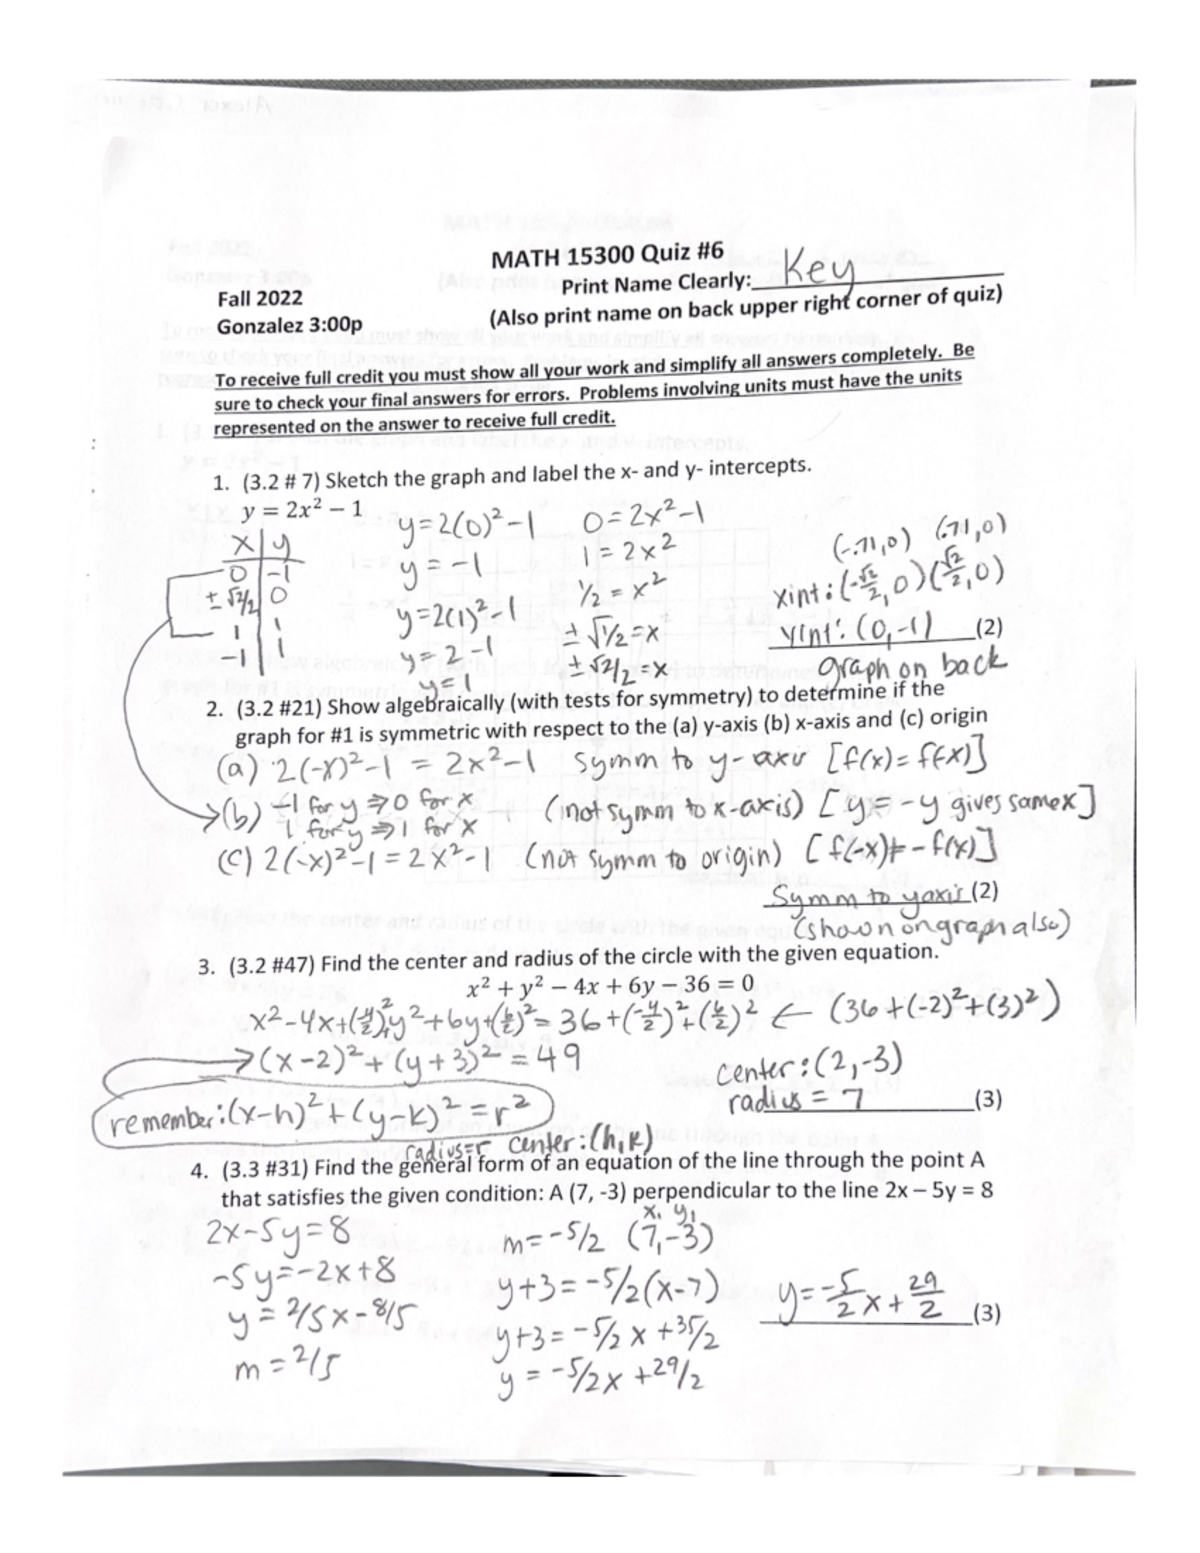 MATH 15300 Quiz #6
Print Name Clearly: Key
Fall 2022
Gonzalez 3:00p
(Also print name on back upper right corner of quiz)
To receive full credit you must show all your work and simplify all answers completely. Be
sure to check your final answers for errors. Problems involving units must have the units
represented on the answer to receive full credit.
1. (3.2 # 7) Sketch the graph and label the x- and y- intercepts.
y = 2x² – 1
x | y
0 | -1
± √2/2 | 0
1 | 1
-1 | 1
y=2(0)²-1
y = -1
y=2(1)²-1
y= 2 -1
y=1
0=2x²-1
1 = 2x²
1/2 = x²
± √1/2 = x
± √2/2 = x
(-.71,0) (.71,0)
xint: (-√2/2, 0)(√2/2, 0)
yint: (0,-1) (2)
graph on back
2. (3.2 #21) Show algebraically (with tests for symmetry) to determine if the
graph for #1 is symmetric with respect to the (a) y-axis (b) x-axis and (c) origin
(a) 2(-x)²-1 = 2x²-1 symm to y-axis [f(x)= f(-x)]
(b) -1 for y ⇒ 0 for x (not symm to x-axis) [y = -y gives same x]
1 for y ⇒ 1 for x
(c) 2(-x)²-1 = 2x²-1 (not symm to origin) [f(-x)≠ -f(x)]
Symm to yaxis (2)
(shown on graph also)
3. (3.2 #47) Find the center and radius of the circle with the given equation.
x² + y² – 4x + 6y – 36 = 0
x²-4x+(4/2)²+y²+6y+(6/2)² = 36+(-4/2)²+(6/2)² ← (36+(-2)²+(3)²)
→(x-2)²+(y+3)² = 49
center: (2,-3)
radius = 7 (3)
remember: (x-h)²+(y-k)² = r²
radius=r center: (h,k)
4. (3.3 #31) Find the general form of an equation of the line through the point A
that satisfies the given condition: A (7, -3) perpendicular to the line 2x – 5y = 8
2x-5y=8
-5y=-2x+8
y = 2/5x-8/5
m = 2/5
x₁ y₁
m=-5/2 (7,-3)
y+3=-5/2(x-7)
y+3=-5/2x+35/2
y = -5/2x +29/2
y=-5/2x+29/2 (3)